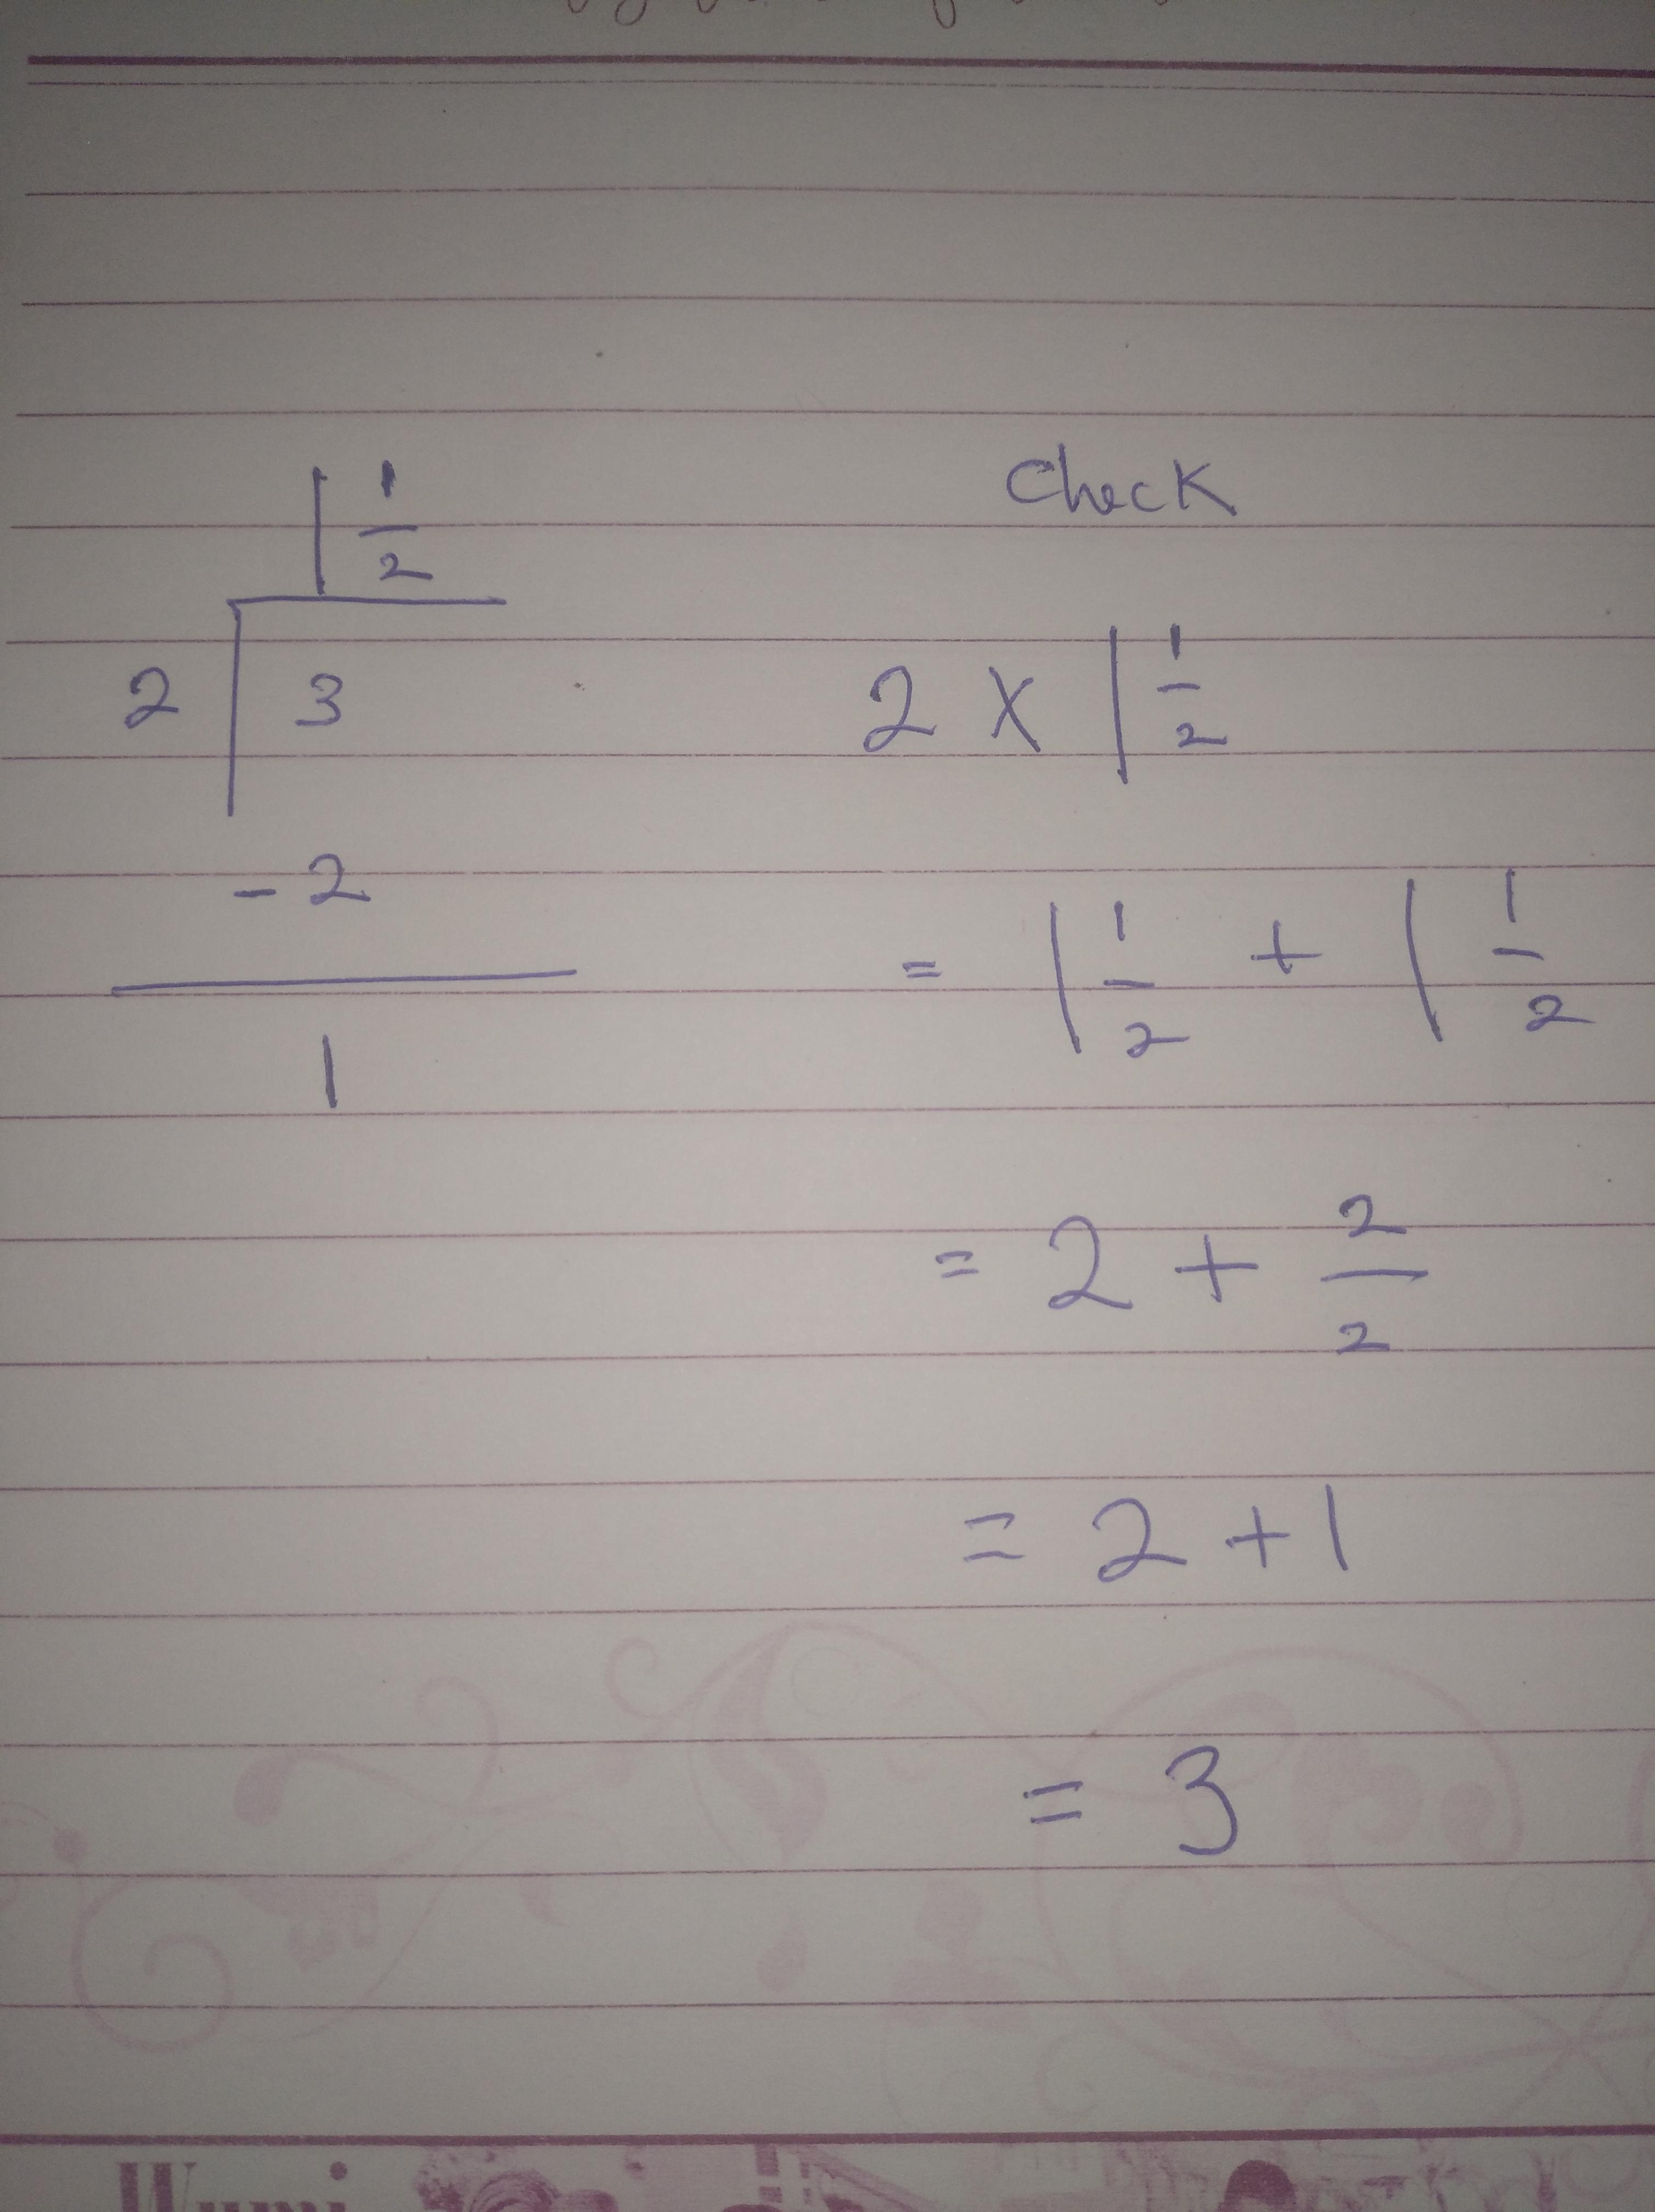 1 1/2
2 | 3
- 2
1
Check
2 × 1 1/2
= 1 1/2 + 1 1/2
= 2 + 2/2
= 2 + 1
= 3